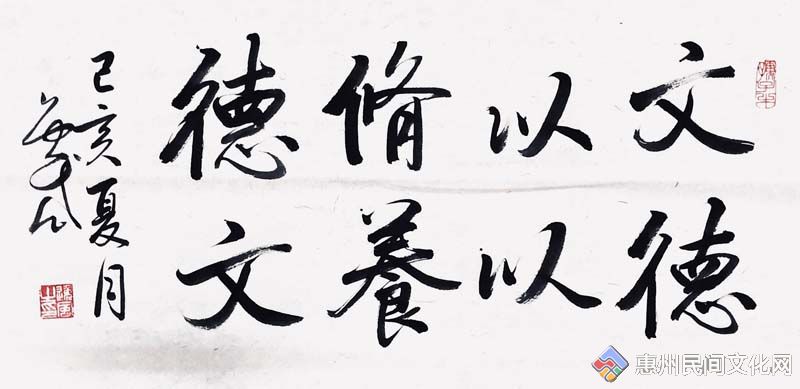 文以脩德
德以養文
己亥夏月
惠州民间文化网